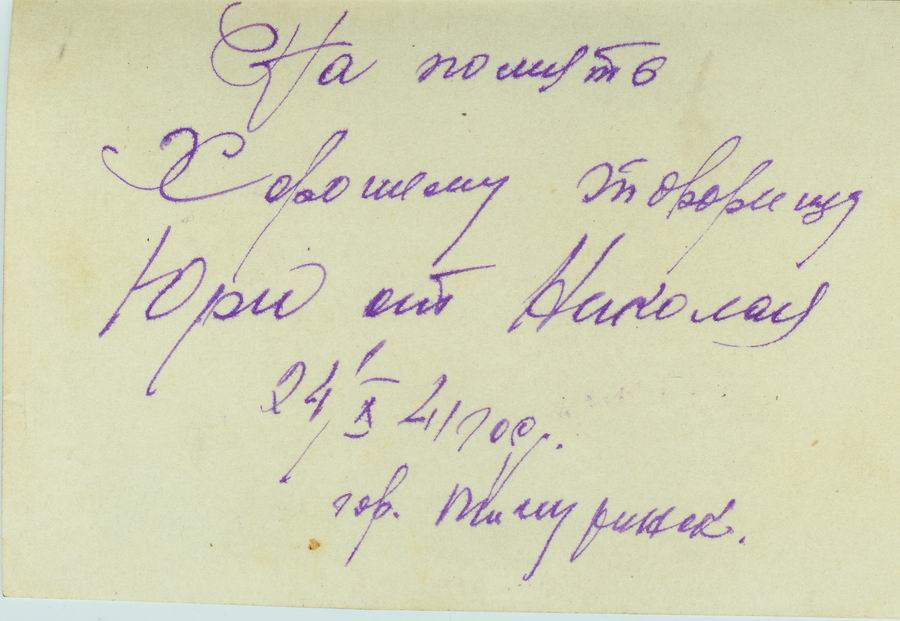 На помять
Хорошему товорищу
Юрию от Николая
24/X 41 год.
гор. Мичуринск.